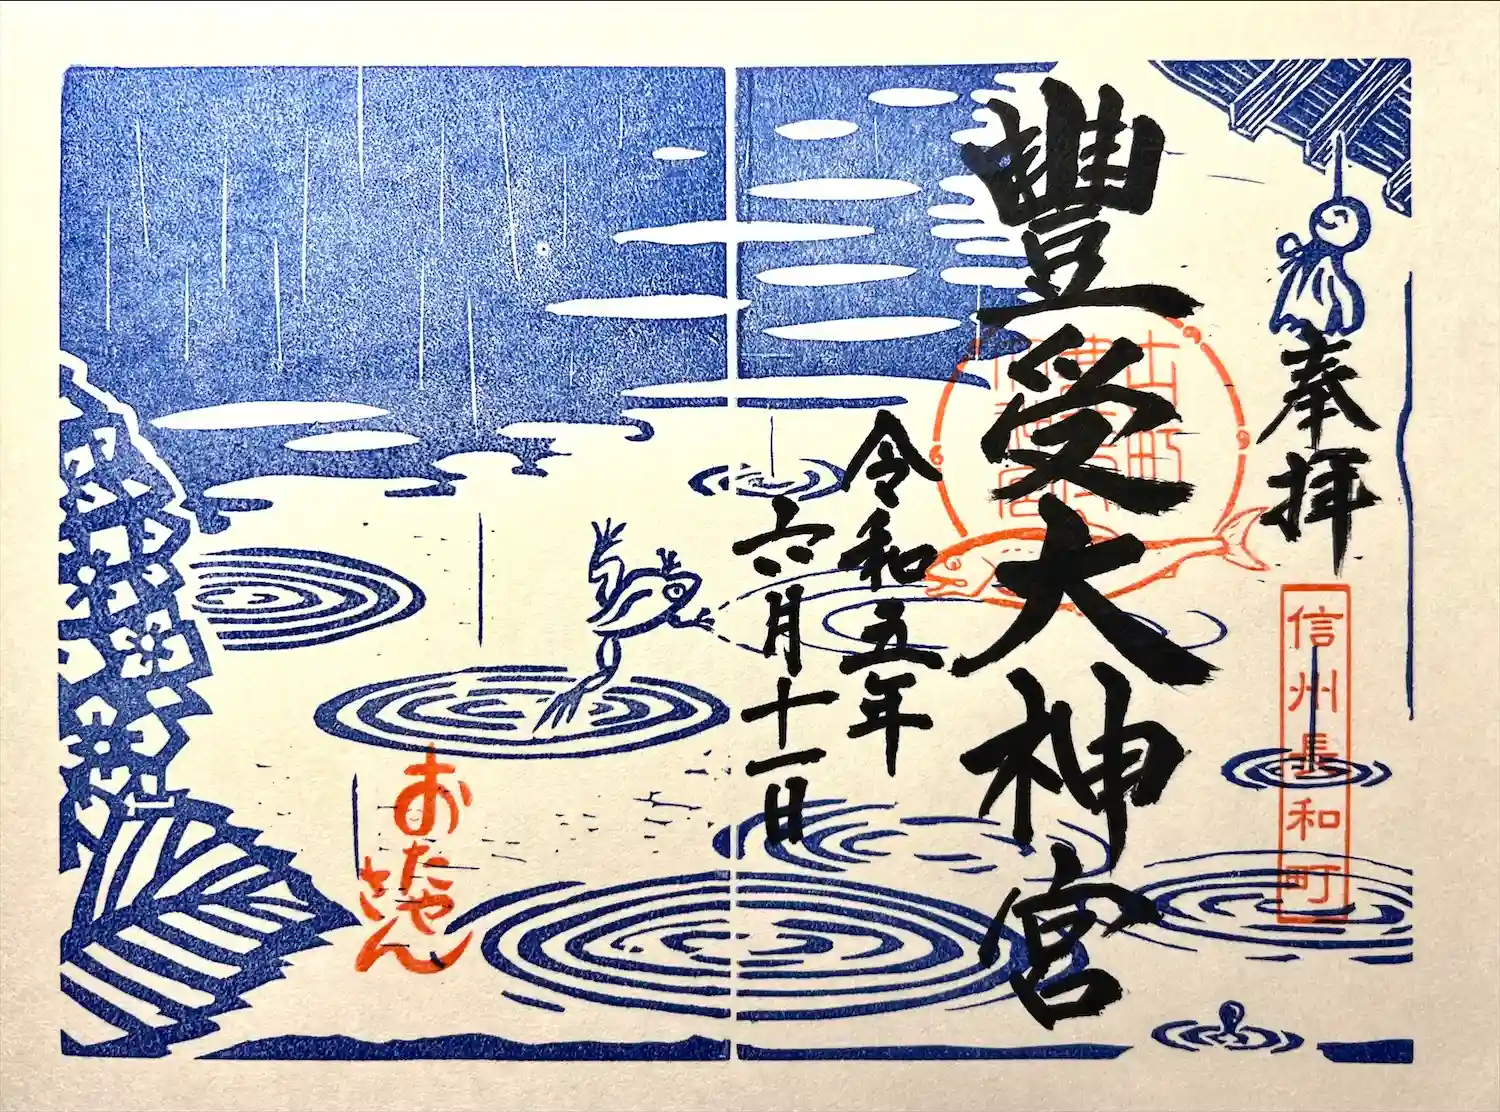 奉拝
信州長和町
豐受大神宮
令和五年
六月十一日
おたや
さん